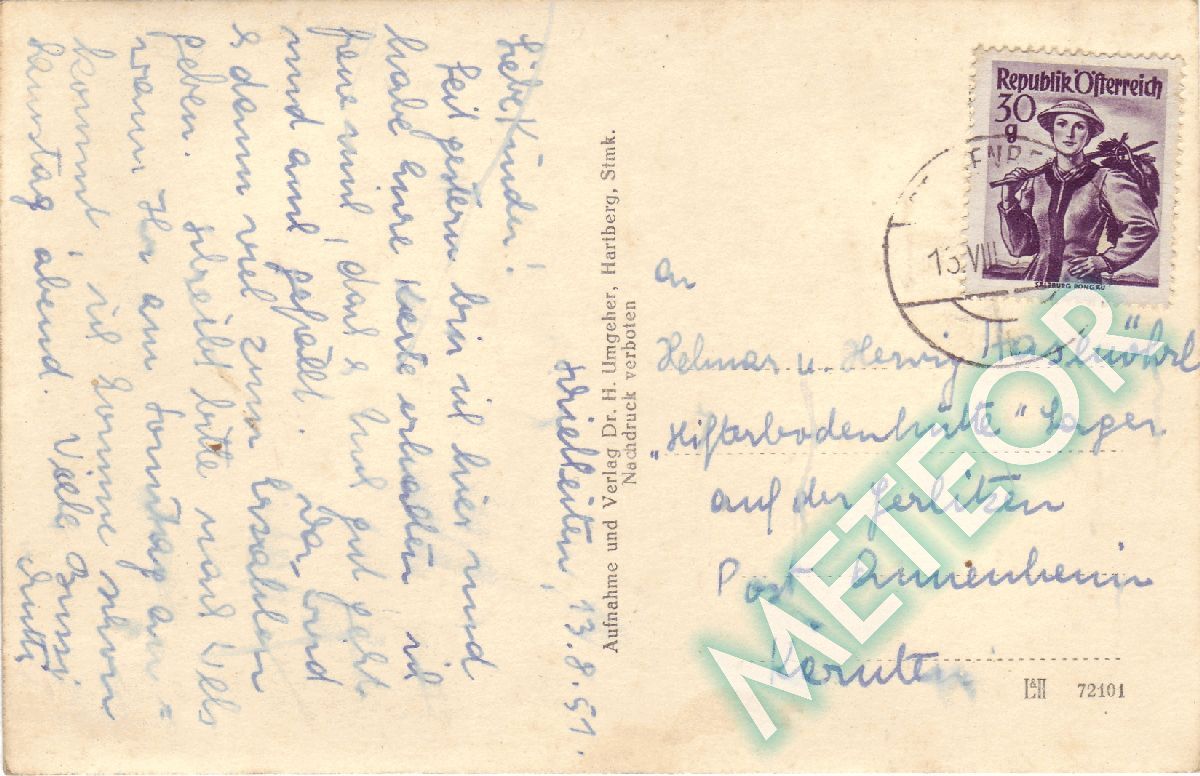 Liebe Kinder!
Seit gestern bin ich hier und
habe eure Karte erhalten ich
freue mich, daß es Euch gut geht
und auch gefällt. Da wird
es dann viel zum Erzählen
geben. Schreibt bitte nach Wels
wann Ihr am Sonntag an-
kommt, ich komme schon
Samstag abend. Viele Bussi
Mutti
13.8.51.
Aufnahme und Verlag Dr. H. Umgeher, Hartberg, Stmk.
Nachdruck verboten
Republik Österreich
30
g
SALZBURG PONGAU
13.VIII
An
Helmar u. Herwig
"Hifterbodenhütte" Lager
auf der Gerlitzen
Post Annenheim
Kärnten
72101
METEOR